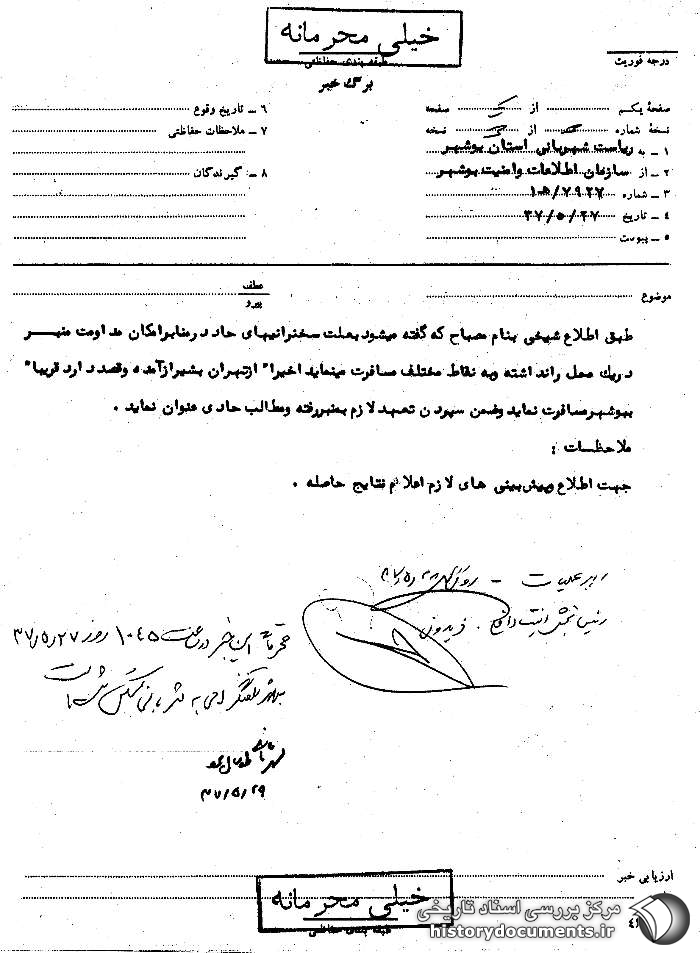 خیلی محرمانه
طبقه بندی حفاظتی
درجه فوریت
برگ خبر
صفحهٔ یکم از یک صفحه
نسخهٔ شماره از نسخه
۱ ـ به ریاست شهربانی استان بوشهر
۲ ـ از سازمان اطلاعات وامنیت بوشهر
۳ ـ شماره ۱۰ه/۷۹۲۷
۴ ـ تاریخ ۳۷/۵/۲۷
۵ ـ پیوست
۶ ـ تاریخ وقوع
۷ ـ ملاحظات حفاظتی
۸ ـ گیرندگان
موضوع
عطف
پیرو
طبق اطلاع شیخی بنام مصباح که گفته میشود بعلت سخنرانیهای حاد در منابر امکان مداومت منبر
در یک محل را نداشته وبه نقاط مختلف مسافرت مینماید اخیرا" از تهران بشیراز آمده وقصد دارد قریبا"
ببوشهر مسافرت نماید وضمن سپردن تعهد لازم بمنبر رفته ومطالب حادی عنوان نماید .
ملاحظات :
جهت اطلاع وپیش بینی های لازم اعلام نتایج حاصله .
رهبر عملیات –
رئیس بخش امنیت داخلی . فریدون
محرمانه این خبر در ساعت ۱۰۴۵ روز ۳۷/۵/۲۷
۳۷/۵/۲۹
ارزیابی خبر
خیلی محرمانه
طبقه بندی حفاظتی
مرکز بررسی اسناد تاریخی
historydocuments.ir